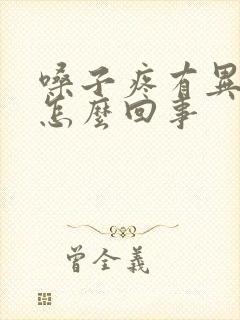 嗓子疼有異
怎麼回事
曾全義